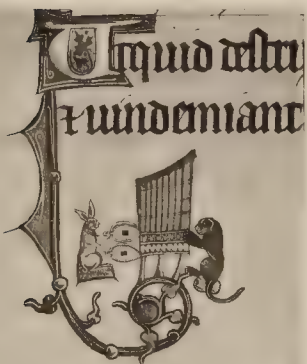 Utquid destru
& uindemiant